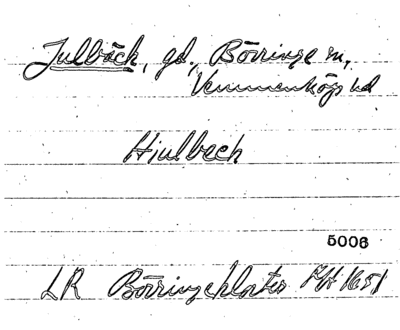 Julbäck, gd, Börringe sn,
Vemmenhögs hd
Hiulbech
5006
LR Börringekloster 1651